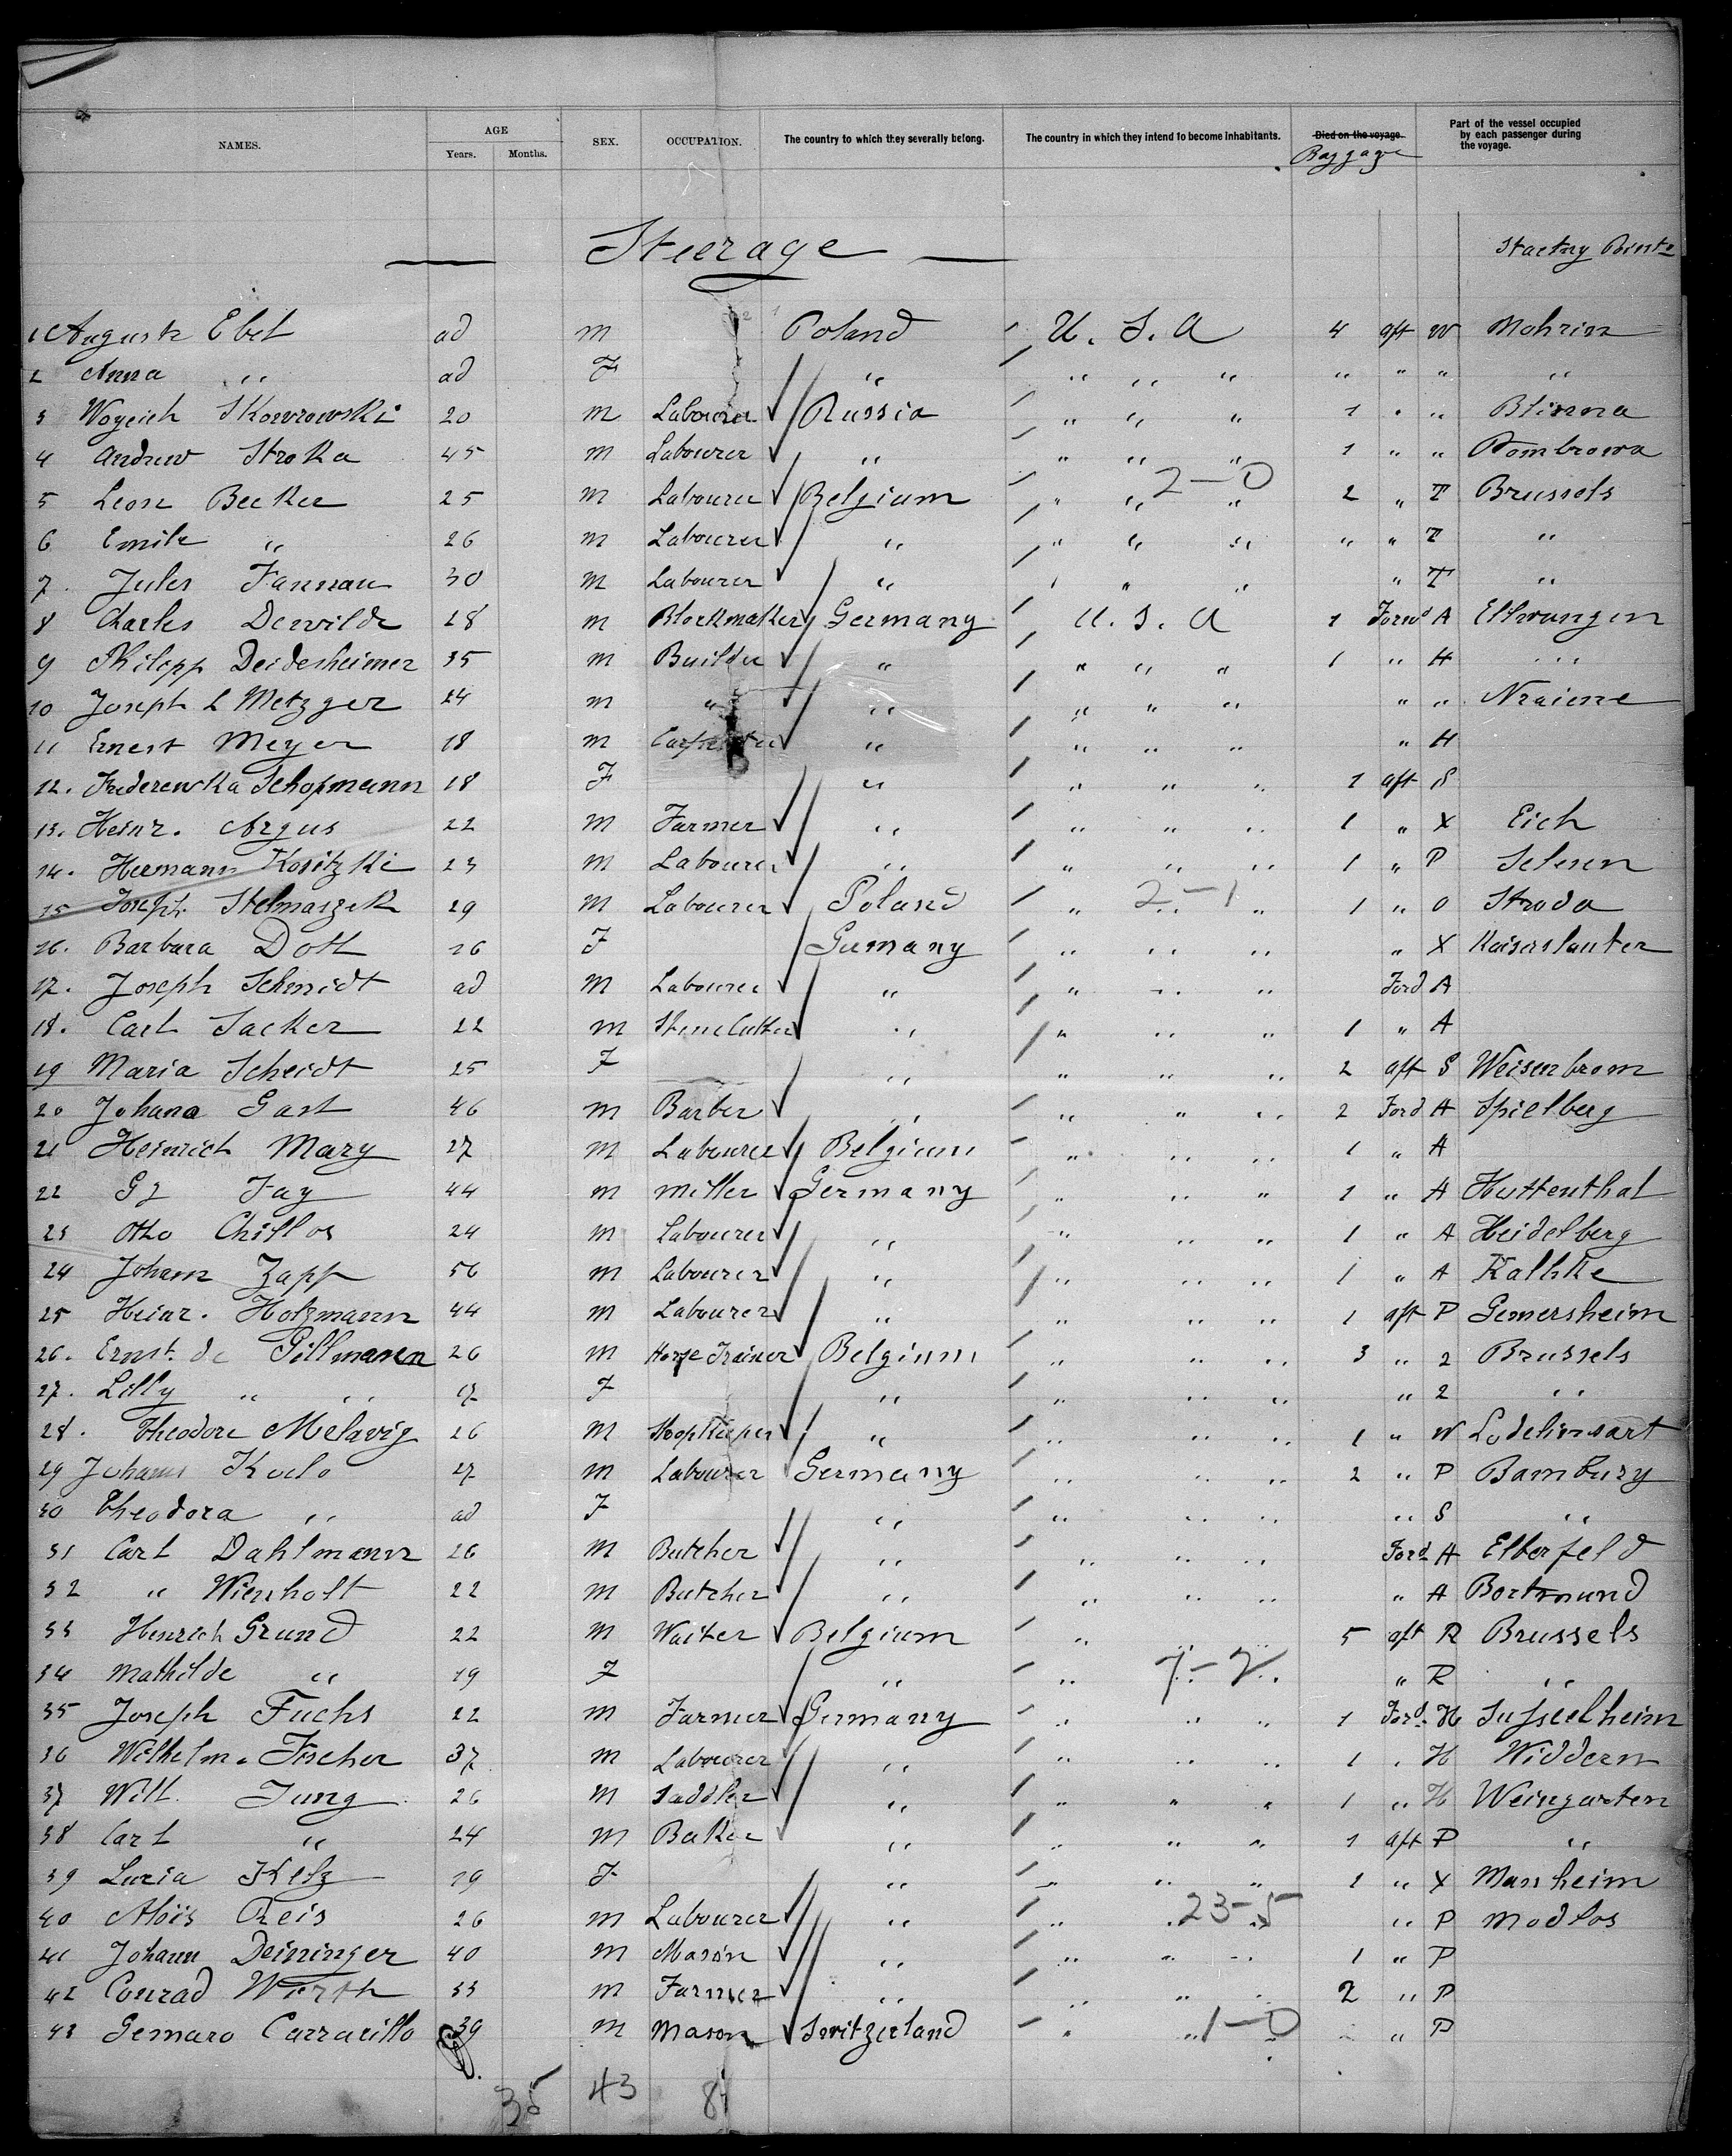 NAMES. AGE Years. Months. SEX. OCCUPATION. The country to which they severally belong. The country in which they intend to become inhabitants. Died on the voyage. Baggage Part of the vessel occupied by each passenger during the voyage.
Steerage
1 August Ebel ad m Poland U. S. A 4 aft W Mohrin
2 Anna " ad F " " " " " " " "
3 Woyeich Skowrowski 20 m Labourer Russia " " " 1 " " Blinna
4 Andrew Stroka 45 m Labourer " " " " 1 " " Dombrowa
5 Leon Becker 25 m Labourer Belgium " " " 2-0 2 " T Brussels
6 Emile " 26 m Labourer " " " " " " T "
7. Jules Fannau 30 m Labourer " " " " " T "
8 Charles Dewilde 28 m Blockmaker Germany U. S. A 1 Forwd A Ellwangen
9 Philipp Deidesheimer 35 m Builder " " " " 1 " H "
10 Joseph L Metzger 24 m " " " " " " "
11 Ernest Meyer 18 m Carpenter " " " " " H
12. Frederewka Schopmann 18 F " " " " 1 aft S
13. Heinr. Argus 22 m Farmer " " " " 1 " X Eich
14. Hermann Kositzki 23 m Labourer " " " " 1 " P
15 Joseph Stelmaszek 29 m Labourer Poland " " " 2-1 1 " O Stroda
16. Barbara Doll 26 F Germany " " " " X Kaiserslauter
17. Joseph Schmidt ad m Labourer " " " " Ford A
18. Carl Sacker 22 m Stone Cutter " " " " 1 " A
19 Maria Scheidt 25 F " " " " 2 aft S Weisenbrom
20 Johana Gast 46 m Barber " " " " 2 Ford A Spielberg
21 Heinrich Mary 27 m Labourer Belgium " " " 1 " A
22 Gg Fay 44 m Miller Germany " " " 1 " A Huttenthal
23 Otto Chillos 24 m Labourer " " " " 1 " A Heidelberg
24 Johann Zapp 56 m Labourer " " " " 1 " A Kalhke
25 Heinr. Holzmann 44 m Labourer " " " " 1 aft P Gemersheim
26. Ernst. de Pillmann 26 m Horse Trainer Belgium " " " 3 " 2 Brussels
27. Lilly " " 17 F " " " " " 2 "
28. Theodore Melavig 26 m Shopkeeper " " " " 1 " W Lodelinsart
29 Johann 27 m Labourer Germany " " " 2 " P Bamburg
30 Theodora " ad F " " " " " S "
31 Carl Dahlmann 26 m Butcher " " " " Ford A Elberfeld
32 " Wienholt 22 m Butcher " " " " " A Bortmund
33 Heinrich Grund 22 m Waiter Belgium " " " 5 aft R Brussels
34 Mathilde " 19 F " " " " 7-2 " R "
35 Joseph Fuchs 22 m Farmer Germany " " " 1 Ford. H
36 Wilhelm. Fischer 37 m Labourer " " " " 1 " H Widdern
37 Will. Jung 26 m Saddler " " " " 1 " H Weingarten
38 Carl " 24 m Baker " " " " 1 aft P "
39 Luria Kelz 19 F " " " " 1 " X Manheim
40 Alois Reis 26 m Labourer " " " " 23-5 " P Modlos
41 Johann Deininger 40 m Mason " " " " 1 " P
42 Conrad Wirth 33 m Farmer " " " " 2 " P
43 Gemaro Carracillo 39 m Mason Switzerland " " " 1-0 " P
35 43 81